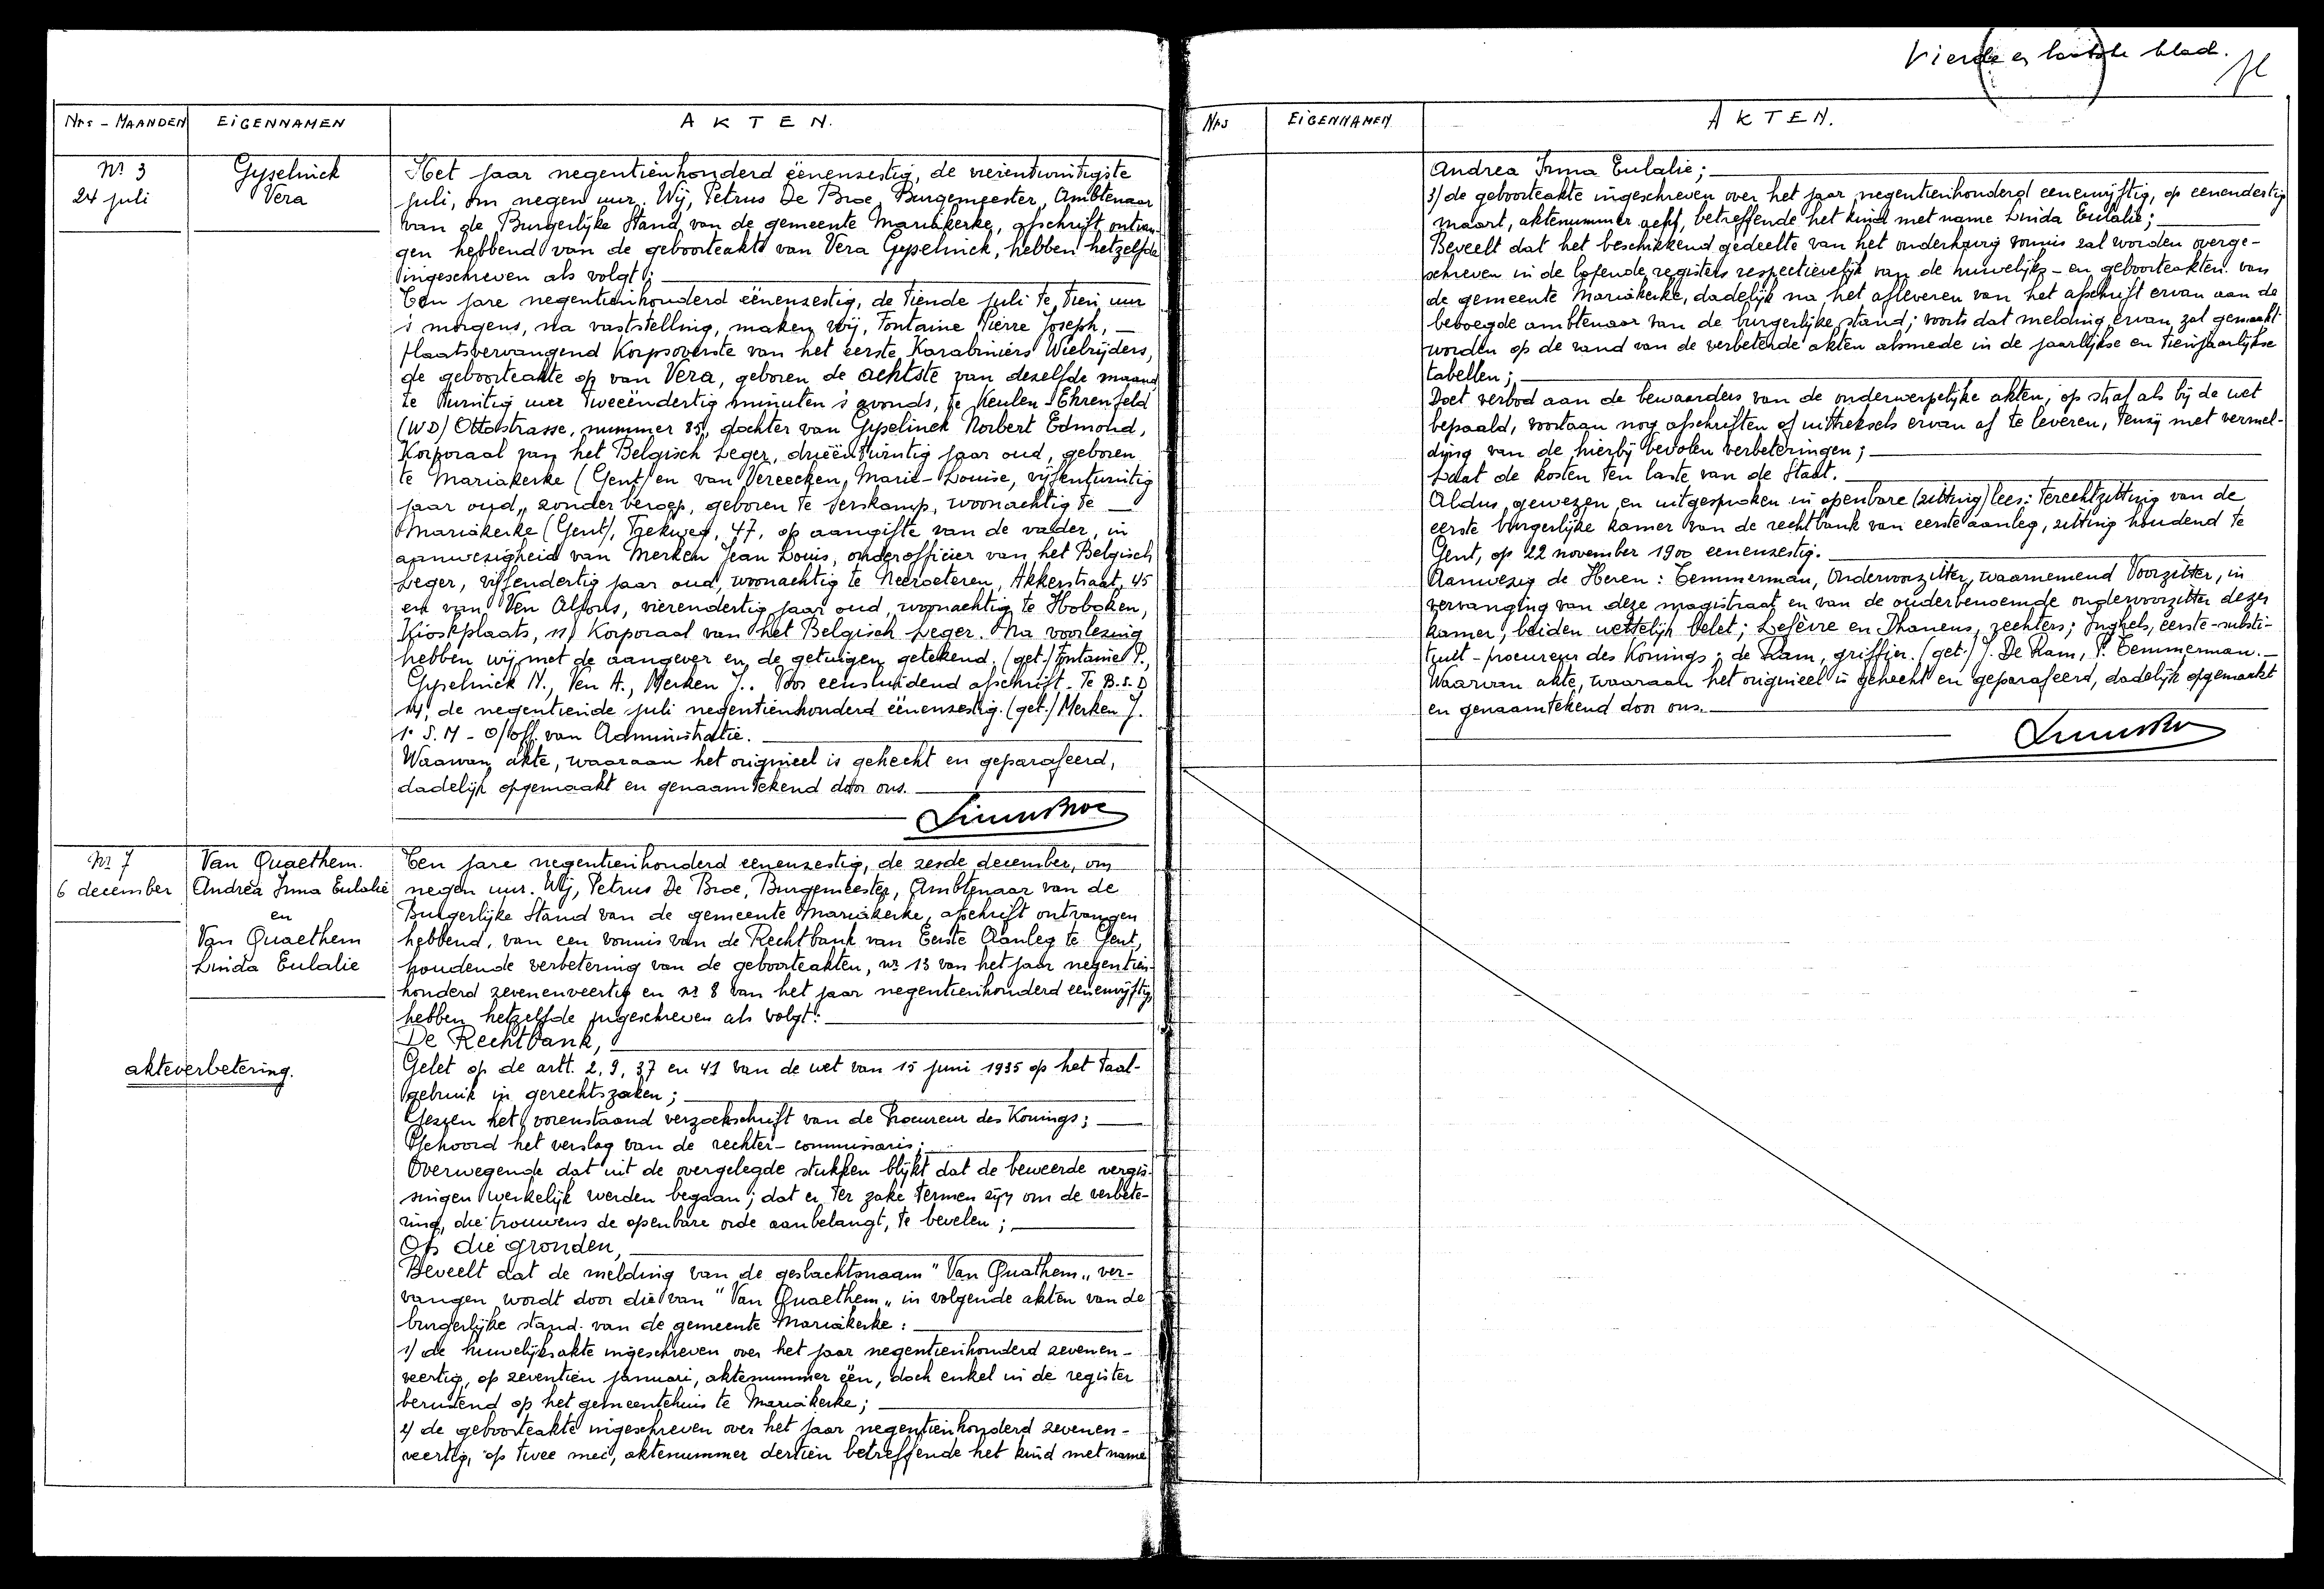 Nrs - MAANDEN EIGENNAMEN AKTEN.
Nr 3
24 juli
Gyselinck
Vera
Het jaar negentienhonderd eenenzestig, de vierentwintigste
juli, om negen uur. Wij, Petrus De Broe, Burgemeester, Ambtenaar
van de Burgerlijke Stand van de gemeente Mariakerke, afschrift ontvan-
gen hebbend van de geboorteakte van Vera Gyselinck, hebben hetzelfde
ingeschreven als volgt:
Ten jare negentienhonderd eenenzestig, de tiende juli te tien uur
's morgens, na vaststelling, maken wij, Fontaine Pierre Joseph,
plaatsvervangend Korpsoverste van het eerste Karabiniers Wielrijders,
de geboorteakte op van Vera, geboren de achtste van dezelfde maand
te twintig uur tweeëndertig minuten 's avonds, te Keulen-Ehrenfeld
(WD) Ottostrasse, nummer 85, dochter van Gyselinck Norbert Edmond,
Korporaal van het Belgisch Leger, drieëntwintig jaar oud, geboren
te Mariakerke (Gent) en van Vereecken, Marie-Louise, vijfentwintig
jaar oud, zonder beroep, geboren te Serskamp, woonachtig te
Mariakerke (Gent), 47, op aangifte van de vader, in
aanwezigheid van Merken Jean Louis, onderofficier van het Belgisch
Leger, vijfendertig jaar oud, woonachtig te Neeroeteren, Akkerstraat, 45
en van Ven Alfons, vierendertig jaar oud, woonachtig te Hoboken,
Kioskplaats, 11, Korporaal van het Belgisch Leger. Na voorlezing
hebben wij met de aangever en de getuigen getekend. (get.) Fontaine P.,
Gyselinck N., Ven A., Merken J.. Voor eensluidend afschrift. Te B.S.D
14, de negentiende juli negentienhonderd eenenzestig. (get.) Merken J.
1e S.M - O/off. van Administratie.
Waarvan akte, waaraan het origineel is gehecht en geparafeerd,
dadelijk opgemaakt en genaamtekend door ons.
Nr 7
6 december
Van Quaethem.
Andrea Irma Eulalie
en
Van Quaethem
Linda Eulalie
akteverbetering.
Ten jare negentienhonderd eenenzestig, de zesde december, om
negen uur. Wij, Petrus De Broe, Burgemeester, Ambtenaar van de
Burgerlijke Stand van de gemeente Mariakerke, afschrift ontvangen
hebbend, van een vonnis van de Rechtbank van Eerste Aanleg te Gent,
houdende verbetering van de geboorteakten, nr 13 van het jaar negentien-
honderd zevenenveertig en nr 8 van het jaar negentienhonderd eenenvijftig,
hebben hetzelfde ingeschreven als volgt:
De Rechtbank,
Gelet op de artt. 2, 9, 37 en 41 van de wet van 15 juni 1935 op het taal-
gebruik in gerechtszaken;
Gezien het vorenstaand verzoekschrift van de Procureur des Konings;
Gehoord het verslag van de rechter-commissaris;
Overwegende dat uit de overgelegde stukken blijkt dat de beweerde vergis-
singen werkelijk werden begaan; dat er ter zake termen zijn om de verbete-
ring, die trouwens de openbare orde aanbelangt, te bevelen;
Op die gronden,
Beveelt dat de melding van de geslachtsnaam "Van Quathem" ver-
vangen wordt door die van "Van Quaethem" in volgende akten van de
burgerlijke stand van de gemeente Mariakerke:
1) de huwelijksakte ingeschreven over het jaar negentienhonderd zevenen-
veertig, op zeventien januari, aktenummer één, doch enkel in de register
berustend op het gemeentehuis te Mariakerke;
2) de geboorteakte ingeschreven over het jaar negentienhonderd zevenen-
veertig, op twee mei, aktenummer dertien betreffende het kind met name
Vierde en laatste blad.
Nrs EIGENNAMEN AKTEN.
Andrea Irma Eulalie;
3) de geboorteakte ingeschreven over het jaar negentienhonderd eenenvijftig, op eenendertig
maart, aktenummer acht, betreffende het kind met name Linda Eulalie;
Beveelt dat het beschikkend gedeelte van het onderhavig vonnis zal worden overge-
schreven in de lopende registers respectievelijk van de huwelijks- en geboorteakten van
de gemeente Mariakerke, dadelijk na het afleveren van het afschrift ervan aan de
bevoegde ambtenaar van de burgerlijke stand; voorts dat melding ervan zal gemaakt
worden op de rand van de verbeterde akten alsmede in de jaarlijkse en tienjaarlijkse
tabellen;
Doet verbod aan de bewaarders van de onderwerpelijke akten, op straf als bij de wet
bepaald, voortaan nog afschriften of uittreksels ervan af te leveren, tenzij met vermel-
ding van de hierbij bevolen verbeteringen;
Laat de kosten ten laste van de Staat.
Aldus gewezen en uitgesproken in openbare (zitting) lees: terechtzitting van de
eerste burgerlijke kamer van de rechtbank van eerste aanleg, zitting houdend te
Gent, op 22 november 1900 eenenzestig.
Aanwezig de Heren: Temmerman, Ondervoorzitter, waarnemend Voorzitter, in
vervanging van deze magistraat en van de ouderbenoemde ondervoorzitter dezer
kamer, beiden wettelijk belet; Lefèvre en Dhanens, rechters; Inghels, eerste-substi-
tuut-procureur des Konings; de Ram, griffier. (get.) J. De Ram, P. Temmerman.
Waarvan akte, waaraan het origineel is gehecht en geparafeerd, dadelijk opgemaakt
en genaamtekend door ons.